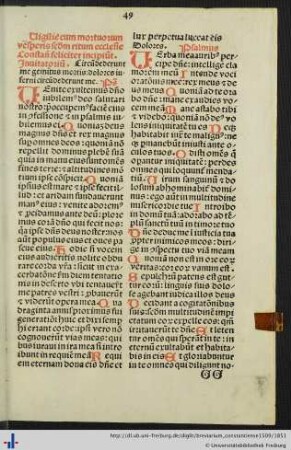 49
Vigilie cum mortuorum
vesperis secdm ritum ecclesie
Constan feliciter incipiunt
Inuitatorium Circūdederunt
me gemitus mortis dolores in
ferni circūdederunt me. Ps
Venite exultemus dño
iubilem⁹ deo salutari
nostro: p̄occupem⁹ faciē eius
in psalmis iu
bilemus ei Quoniam deus
magnus dñs et rex magnus
sup omnes deos: quoniā nō
repellet dominus plebē suā
quia in manu eius sunt omnes
fines terre: et altitudines mō
tium ipse cōspicit Quoniā
ipsius est mare et ipse fecit il
lud: et aridam fundauerunt
man⁹ eius: venite adorem⁹
et p̄cidamus ante deū: plore
mus corā dño qui fecit nos:
quia ipse est dñs deus noster
nos aūt populus eius et oues pa
scue eius Hodie si vocem
eius audieritis nolite obdu
rare corda vr̄a: sicut in exa
cerbatione scdm diem tentatio
nis in deserto vbi tentauerūt
me patres vestri: probauerūt
et viderūt opera mea Qua
draginta annis proximus fui
generatiōi huic et dixi semp
hi errant corde: ipsi vero nō
cognouerūt vias meas: qui
bus iuraui in ira mea si intro
ibunt in requiē meā Requi
em eternam dona eis dñe et
lux perpetua luceat eis
Dolores. Psalmus
Verba mea aurib⁹ per
cipe dñe: intellige cla
morem meū Intende voci
orationis mee: rex meus et
deus meus Quoniā ad te ora
bo dñe: mane exaudies vo
cem meā Mane astabo
tibi et videbo: quoniā nō de⁹ vo
lens iniquitatē tu es Neq3
habitabit iuxta te malign⁹: ne
q3 permanebūt iniusti ante
oculos tuos Odisti omēs q
operantur iniquitatē: perdes
omnes qui loquunt̄ menda
ciū Virum sanguinū et do
losum abhominabit̄ domi
nus: ego aūt in multitudine
misericordie tue Introibo
in domū tuā: adorabo ad tē
plū sanctū tuū in timore tuo
Dñe deduc me ī iusticia tua
ppter inimicos meos: diri
ge in cōspectu tuo viā meam
Quoniā non est in ore eo
rum veritas: cor eorū vanum est
Sepulchrū patens est gut
tur eorū: linguis suis dolo
se agebant iudica illos deus
Decidant a cogitationibus
suis: scdm multitudinē impie
tatum eorū expelle eos: qm̄
irritauerūt te dñe Et leten
tur omēs qui sperāt in te: in
eternū exultabūt et habita
bis in eis Et gloriabuntur
in te omēs qui diligūt no
http://dl.ub.uni-freiburg.de/diglit/breviarium_constantiense1509/1051
© Universitätsbibliothek Freiburg